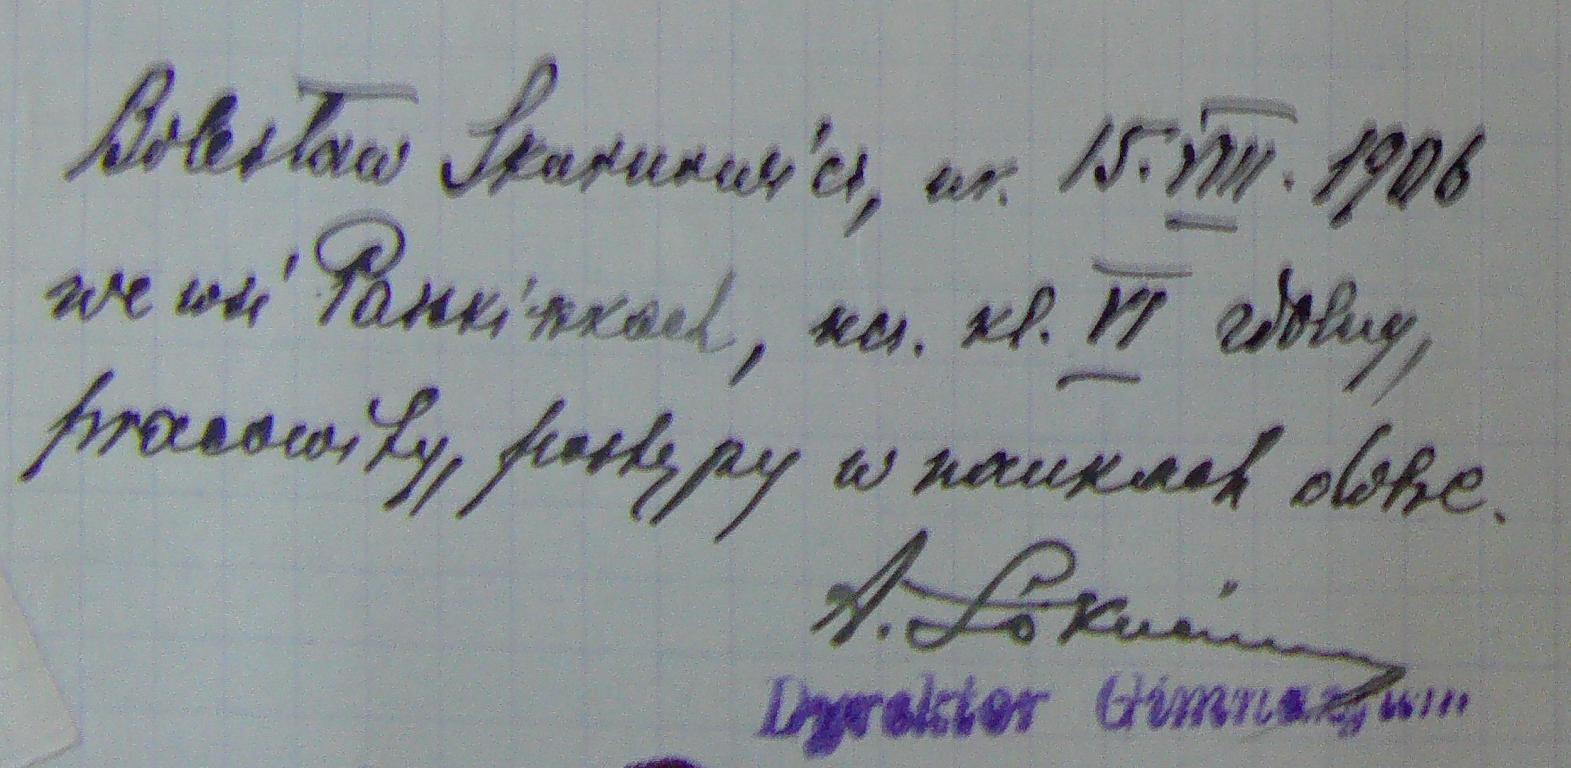 Bolesław Skarunowicz, ur. 15.VIII.1906
we wsi Paszkiszkach, ucz. kl. VI zdolny,
pracowity, postępy w naukach dobre.
A.
Dyrektor Gimnazjum